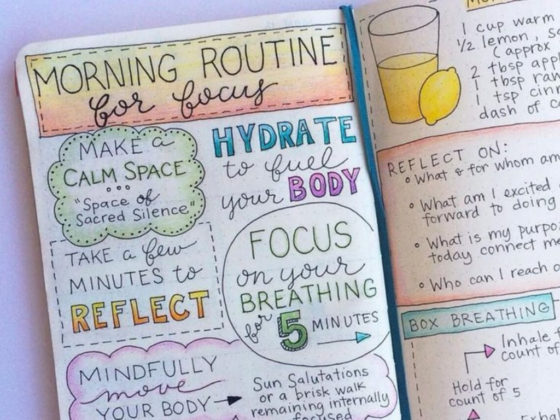 MORNING ROUTINE
for focus
MAKE a
CALM SPACE
...
"Space of
Sacred Silence"
HYDRATE
to fuel
your BODY
TAKE a few
MINUTES to
REFLECT
FOCUS
on your
BREATHING
for 5 MINUTES
MINDFULLY
move
YOUR BODY →
Sun Salutations
or a brisk walk
remaining internally
focused
1 cup warm
1/2 lemon,
(approx
2 tbsp
1 tbsp
1 tsp
dash of
REFLECT ON:
• What & for whom am
• What am I excited
forward to doing
• What is my
today connect
• Who can I reach
BOX BREATHING
Inhale
count of
Hold for
count of 5